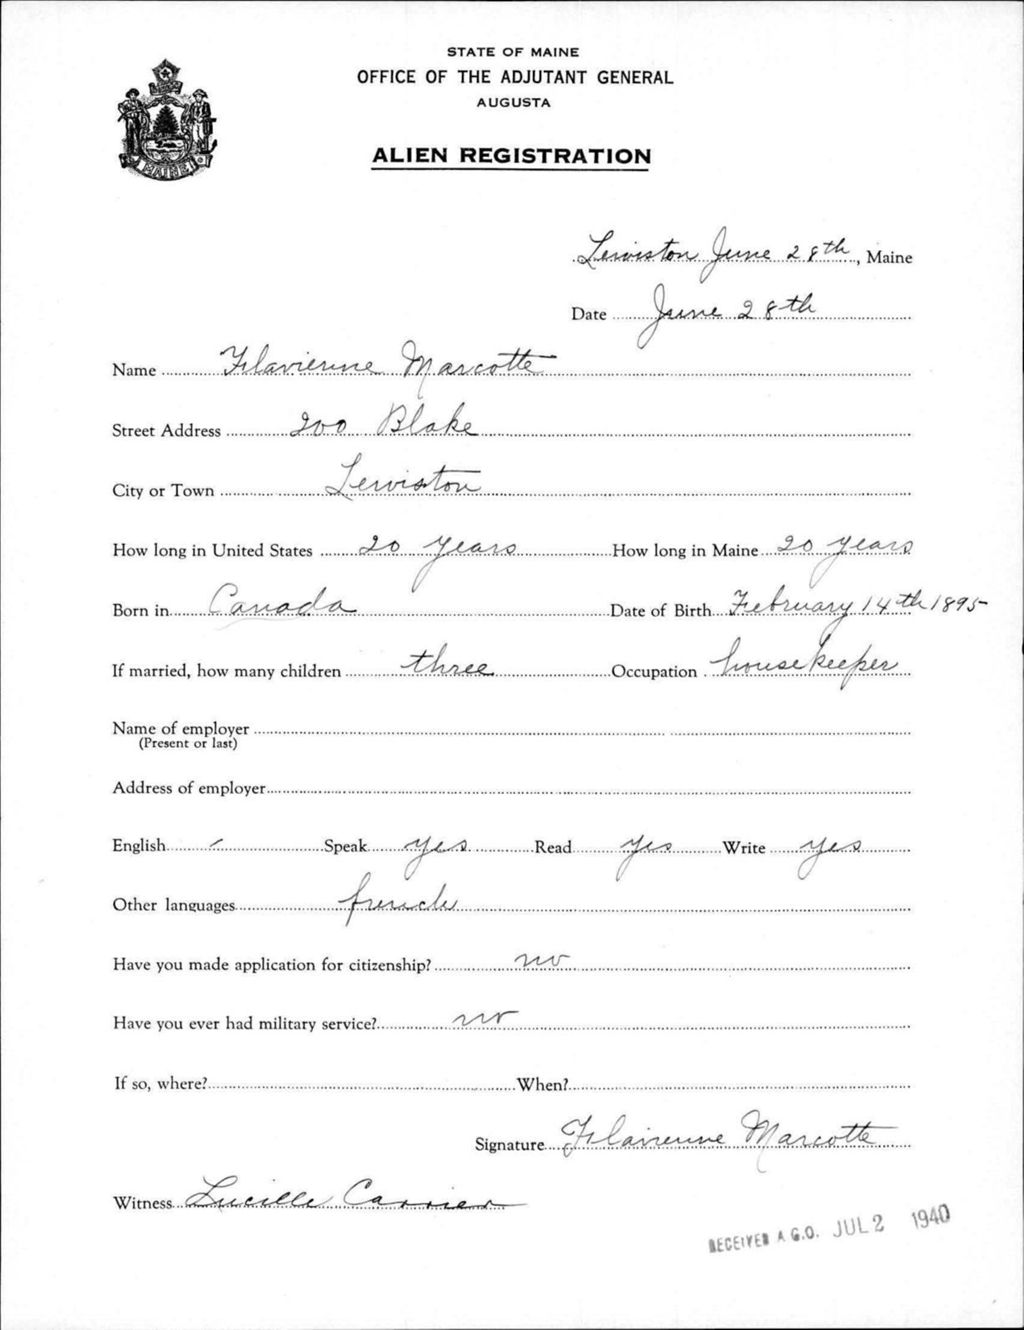 STATE OF MAINE
OFFICE OF THE ADJUTANT GENERAL
AUGUSTA
ALIEN REGISTRATION
MAINE
Lewiston June 28th, Maine
Date June 28th
Name Flavienne Marcotte
Street Address 200 Blake
City or Town Lewiston
How long in United States 20 years How long in Maine 20 years
Born in Canada Date of Birth February 14th 1895
If married, how many children three Occupation housekeeper
Name of employer
(Present or last)
Address of employer
English Speak yes Read yes Write yes
Other languages french
Have you made application for citizenship? no
Have you ever had military service? no
If so, where? When?
Signature Flavienne Marcotte
Witness Lucille Carrier
RECEIVED A.G.O. JUL 2 1940